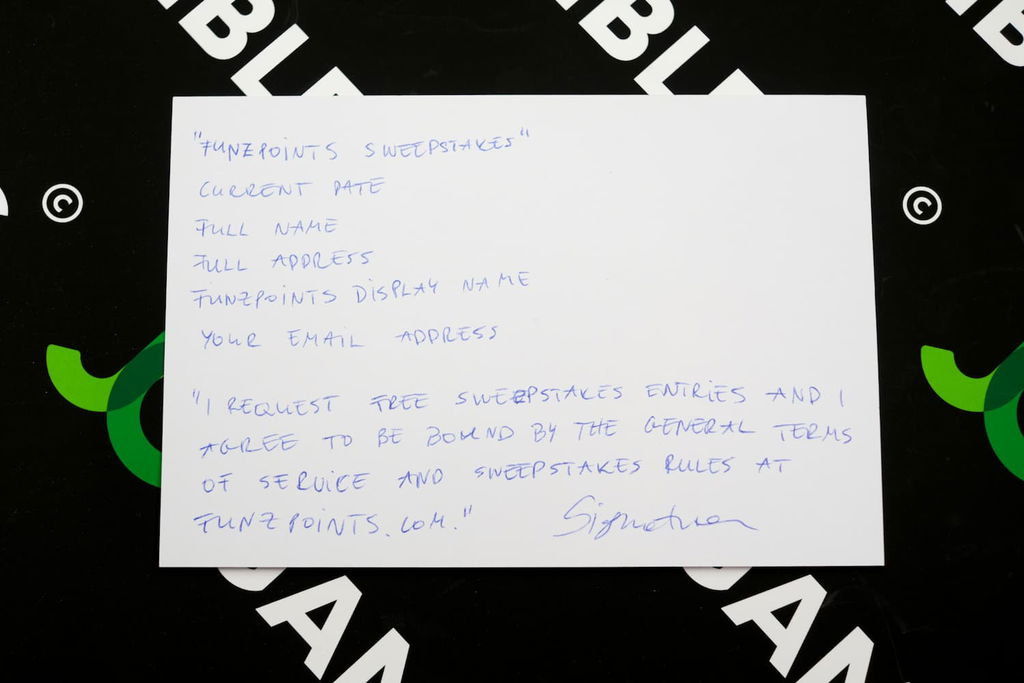 IBLE
IBLE
IB
©
©
"FUNZPOINTS SWEEPSTAKES"
CURRENT DATE
FULL NAME
FULL ADDRESS
FUNZPOINTS DISPLAY NAME
YOUR EMAIL ADDRESS
"I REQUEST FREE SWEEPSTAKES ENTRIES AND I
AGREE TO BE BOUND BY THE GENERAL TERMS
OF SERVICE AND SWEEPSTAKES RULES AT
FUNZPOINTS.COM."
Signature
GAM
GAM